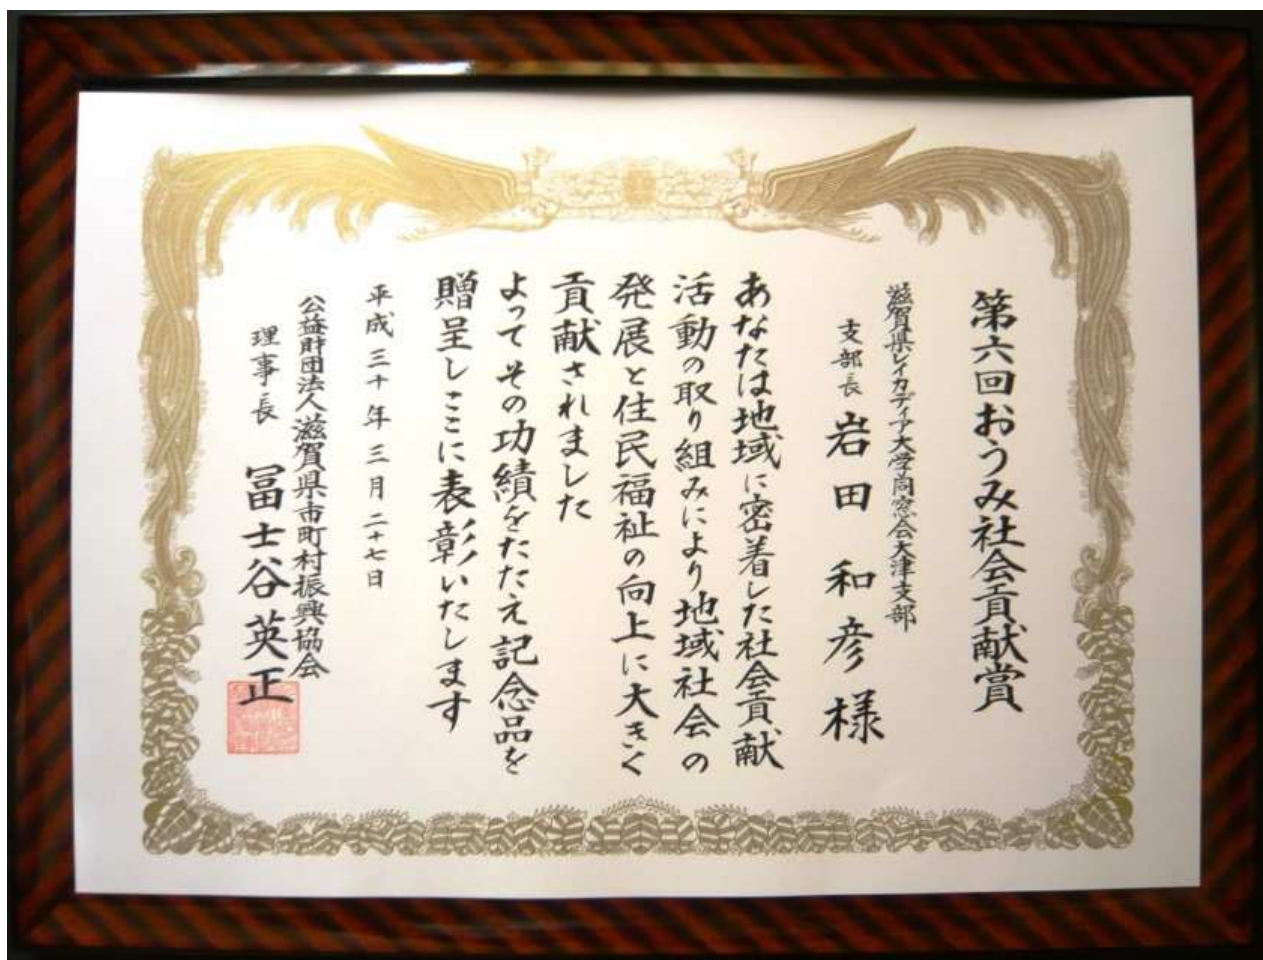 第六回おうみ社会貢献賞
滋賀県レイカディア大学同窓会大津支部
支部長 岩田和彦様
あなたは地域に密着した社会貢献
活動の取り組みにより地域社会の
発展と住民福祉の向上に大きく
貢献されました
よってその功績をたたえ記念品を
贈呈しここに表彰いたします
平成三十年三月二十七日
公益財団法人滋賀県市町村振興協会
理事長 冨士谷英正